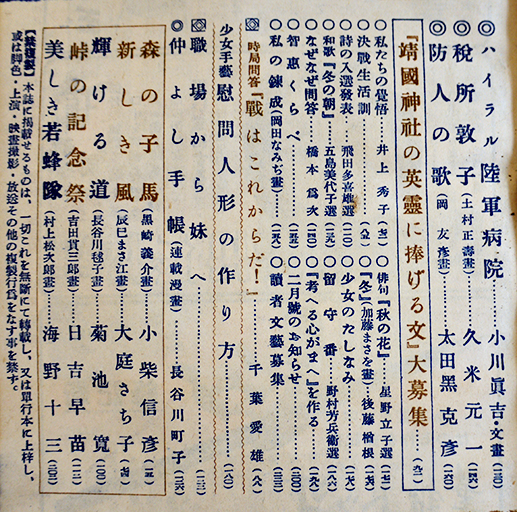 ◎ハイラル陸軍病院……小川眞吉・文畫(三〇)
◎稅所敦子(土村正壽畫)……久米元一(一四)
◎防人の歌(岡友彥畫)……太田黑克彥
『靖國神社の英靈に捧げる文』大募集……(九二)
◎私たちの覺悟……井上秀子
◎決戰生活訓……(八九)
◎詩の入選發表……飛田多喜雄選
◎和歌『冬の朝』……五島美代子選
◎なぜなぜ問答……橋本爲次
◎智惠くらべ……
◎私の鍊成(岡田なみぢ畫)……
◎俳句『秋の花』……星野立子選
◎『冬』(加藤まさを畫)……後藤楢根
◎少女のたしなみ……
◎留守番……野村芳兵衞選
◎『考へる心がまへ』を作る……
◎二月號のお知らせ……
◎讀者文藝募集……
時局問答『戰はこれからだ!』……千葉愛雄(八)
少女手藝 慰問人形の作り方……
◎職場から妹へ……
◎仲よし手帳(連載漫畫)……長谷川町子
森の子馬(黑崎義介畫)……小柴信彥
新しき風(辰巳まさ江畫)……大庭さち子
輝ける道(長谷川毬子畫)……菊池寬
峠の記念祭(吉田貫三郎畫)……日吉早苗
美しき若蜂隊(村上松次郎畫)……海野十三
【禁複製】本誌に揭載せるものは、一切これを無斷にて轉載し、又は單行本に上梓し、
或は脚色・上演・映畫撮影・放送その他の複製行爲をなす事を禁ず。